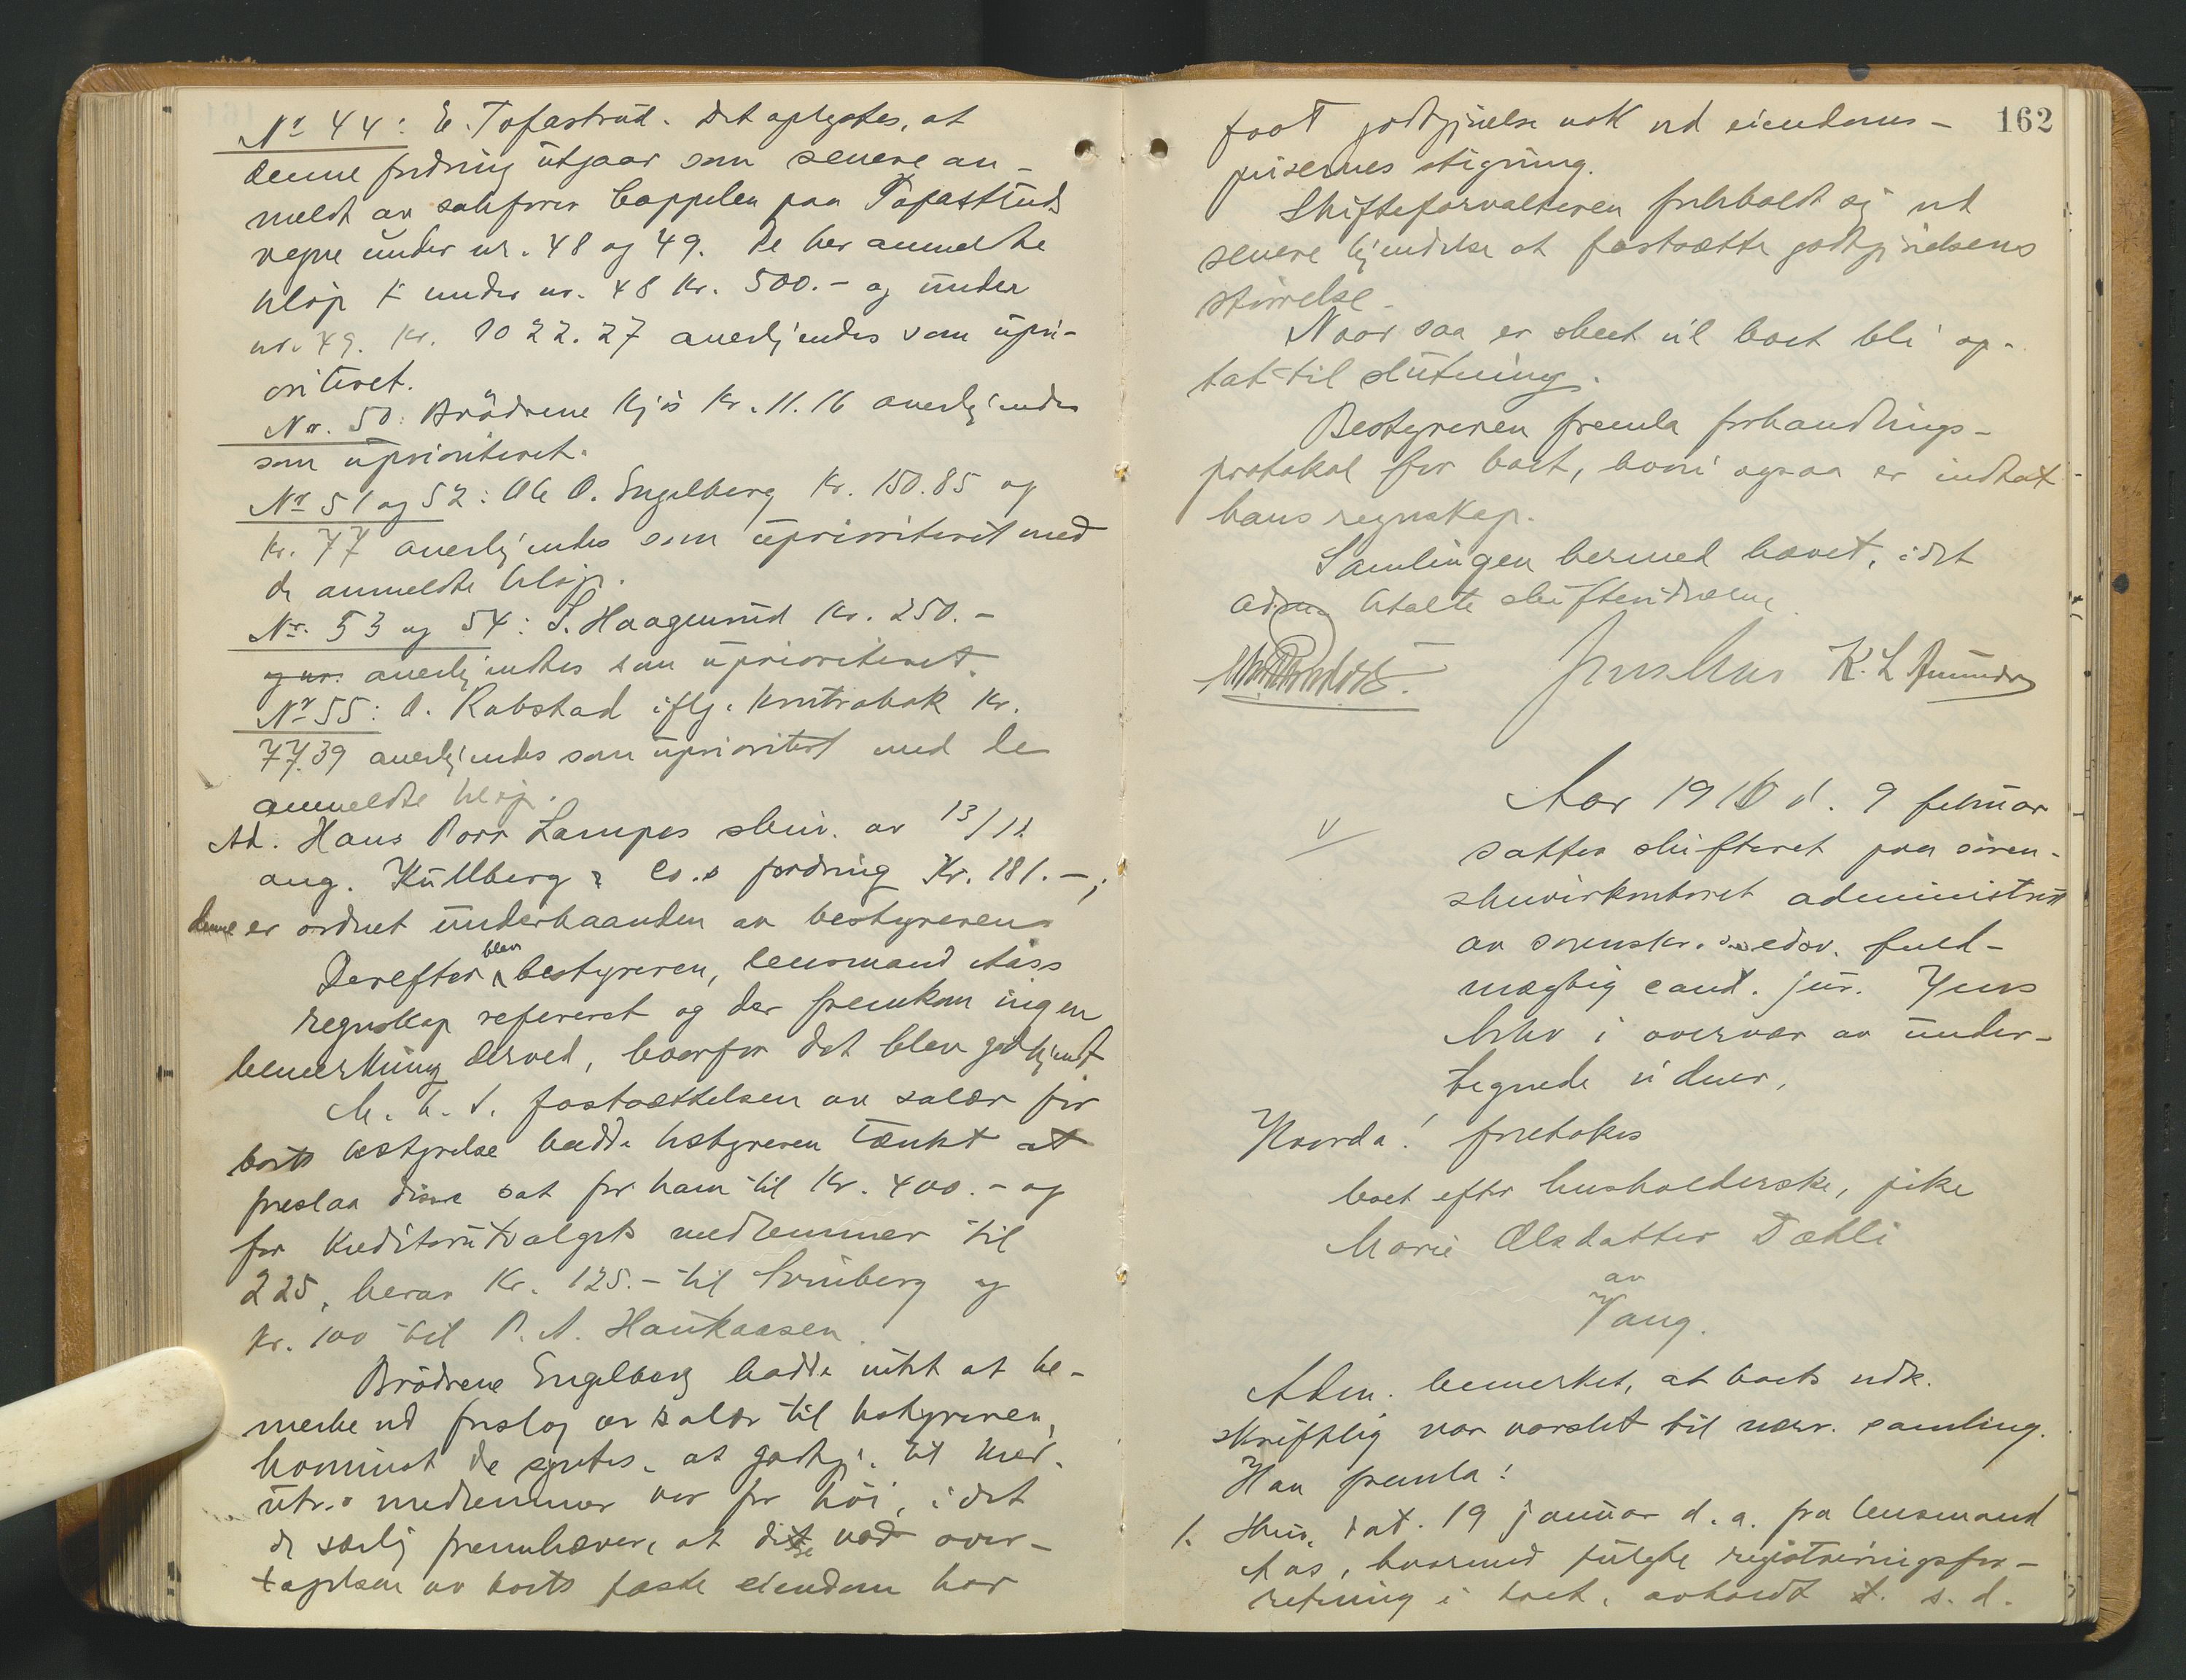 Nr 44: E. Tofastrud. Det oplystes, at
denne fordring utgaar som senere an-
meldt av sakfører Cappelen paa Tofastruds
vegne under nr. 48 og 49. De her anmeldte
beløp under nr. 48 kr. 500.- og under
nr. 49. kr. 1022.27 anerkjendes som upri-
oritert.
Nr. 50: Brödrene Kjös kr. 11.16 anerkjendes
som uprioriteret.
Nr 51 og 52: Ole O. Engelberg kr. 150.85 og
kr. 77 anerkjendes som uprioriteret med
de anmeldte beløp.
Nr. 53 og 54: S. Haagensrud kr. 250.-
og nr. anerkjendtes som uprioriteret.
Nr 55: O. Rabstad iflg. kontrabok kr.
77.39 anerkjendes som uprioritert med de
anmeldte beløp.
Ad. Hans Parr Lampes skriv. av 13/11
ang. Kullberg & Co.s fordring Kr. 181.-;
denne er ordnet underhaanden av bestyreren
Derefter blev bestyreren, lensmand Aass
regnskap referert og der fremkom ingen
bemerkning derved, hvorfor det blev godkjendt
M. h. t. fastsættelsen av salær for
boets bestyrelse hadde bestyreren tænkt at
foreslaa disse sat for ham til Kr. 400.- og
for kreditorutvalgets medlemmer til
225, herav Kr. 125.- til Svinberg og
kr. 100 til P. A. Haukaasen.
Brödrene Engelberg hadde intet at be-
merke ved forslag om salær til bestyreren,
hvorimot de syntes, at godtgj. til kred.
utv.s medlemmer var for höi, idet
de særlig fremhæver, at disse ved over-
tagelsen av boets faste eiendom har
162
faat godtgjørelse nok ved eiendoms-
prisernes stigning.
Skifteforvalteren forbeholdt sig ved
senere kjendelse at fastsætte godtgjörelsens
störrelse.
Naar saa er skeet vil boet bli op-
tat til slutning.
Bestyreren fremla forhandlings-
protokol for boet, hvori ogsaa er indtat
hans regnskap.
Samlingen hermed hævet, idet
adm. betalte skiftevidnerne.
K. L. Amundsen
Aar 1916 d. 9 februar
sattes skifteret paa soren-
skriverkontoret administrert
av sorenskr. edsv. fuld-
mægtig cand. jur. Jens
i overvær av under-
tegnede vidner,
Hvorda! foretokes
boet efter husholderske, pike
Marie Olsdatter Dæhli
av
Vang.
Adm. bemerket, at boets vedk.
skriftlig var varslet til nærv. samling.
Han fremla:
1. Skriv, dat. 19 januar d. a. fra lensmand
Aas, hvormed fulgte registreringsfor-
retning i boet, avholdt d. s. d.